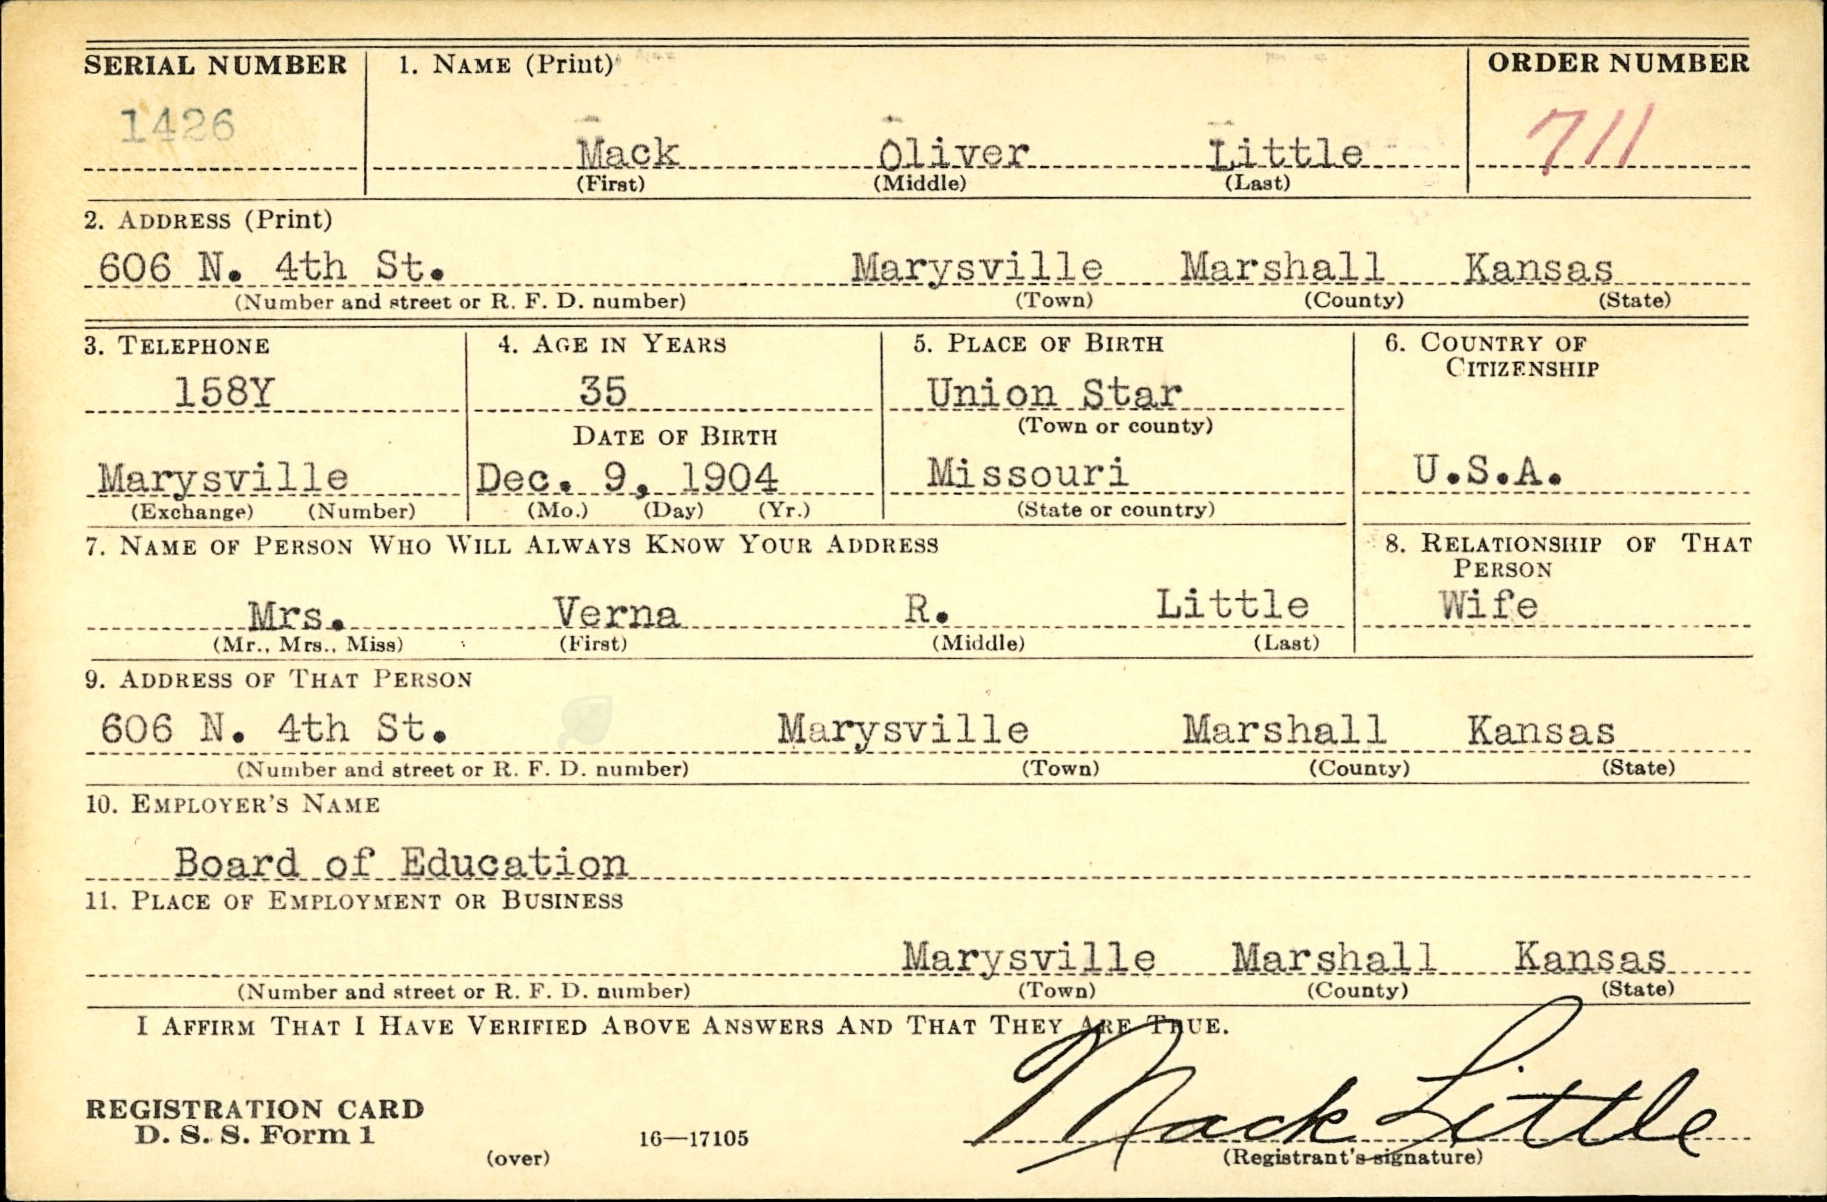 SERIAL NUMBER 1. NAME (Print) ORDER NUMBER
1426 Mack Oliver Little 711
(First) (Middle) (Last)
2. ADDRESS (Print)
606 N. 4th St. Marysville Marshall Kansas
(Number and street or R. F. D. number) (Town) (County) (State)
3. TELEPHONE 4. AGE IN YEARS 5. PLACE OF BIRTH 6. COUNTRY OF
CITIZENSHIP
158Y 35 Union Star
(Town or county)
DATE OF BIRTH
Marysville Dec. 9, 1904 Missouri U.S.A.
(Exchange) (Number) (Mo.) (Day) (Yr.) (State or country)
7. NAME OF PERSON WHO WILL ALWAYS KNOW YOUR ADDRESS 8. RELATIONSHIP OF THAT
PERSON
Mrs. Verna R. Little Wife
(Mr., Mrs., Miss) (First) (Middle) (Last)
9. ADDRESS OF THAT PERSON
606 N. 4th St. Marysville Marshall Kansas
(Number and street or R. F. D. number) (Town) (County) (State)
10. EMPLOYER'S NAME
Board of Education
11. PLACE OF EMPLOYMENT OR BUSINESS
Marysville Marshall Kansas
(Number and street or R. F. D. number) (Town) (County) (State)
I AFFIRM THAT I HAVE VERIFIED ABOVE ANSWERS AND THAT THEY ARE TRUE.
REGISTRATION CARD
D. S. S. Form 1 16—17105 Mack Little
(over) (Registrant's signature)